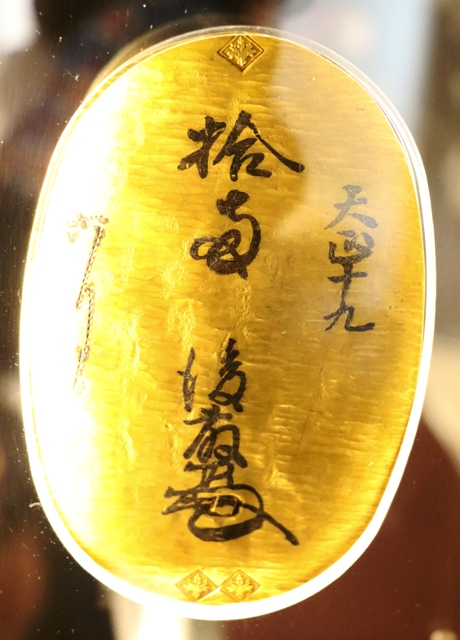 天正十九
拾両 後藤